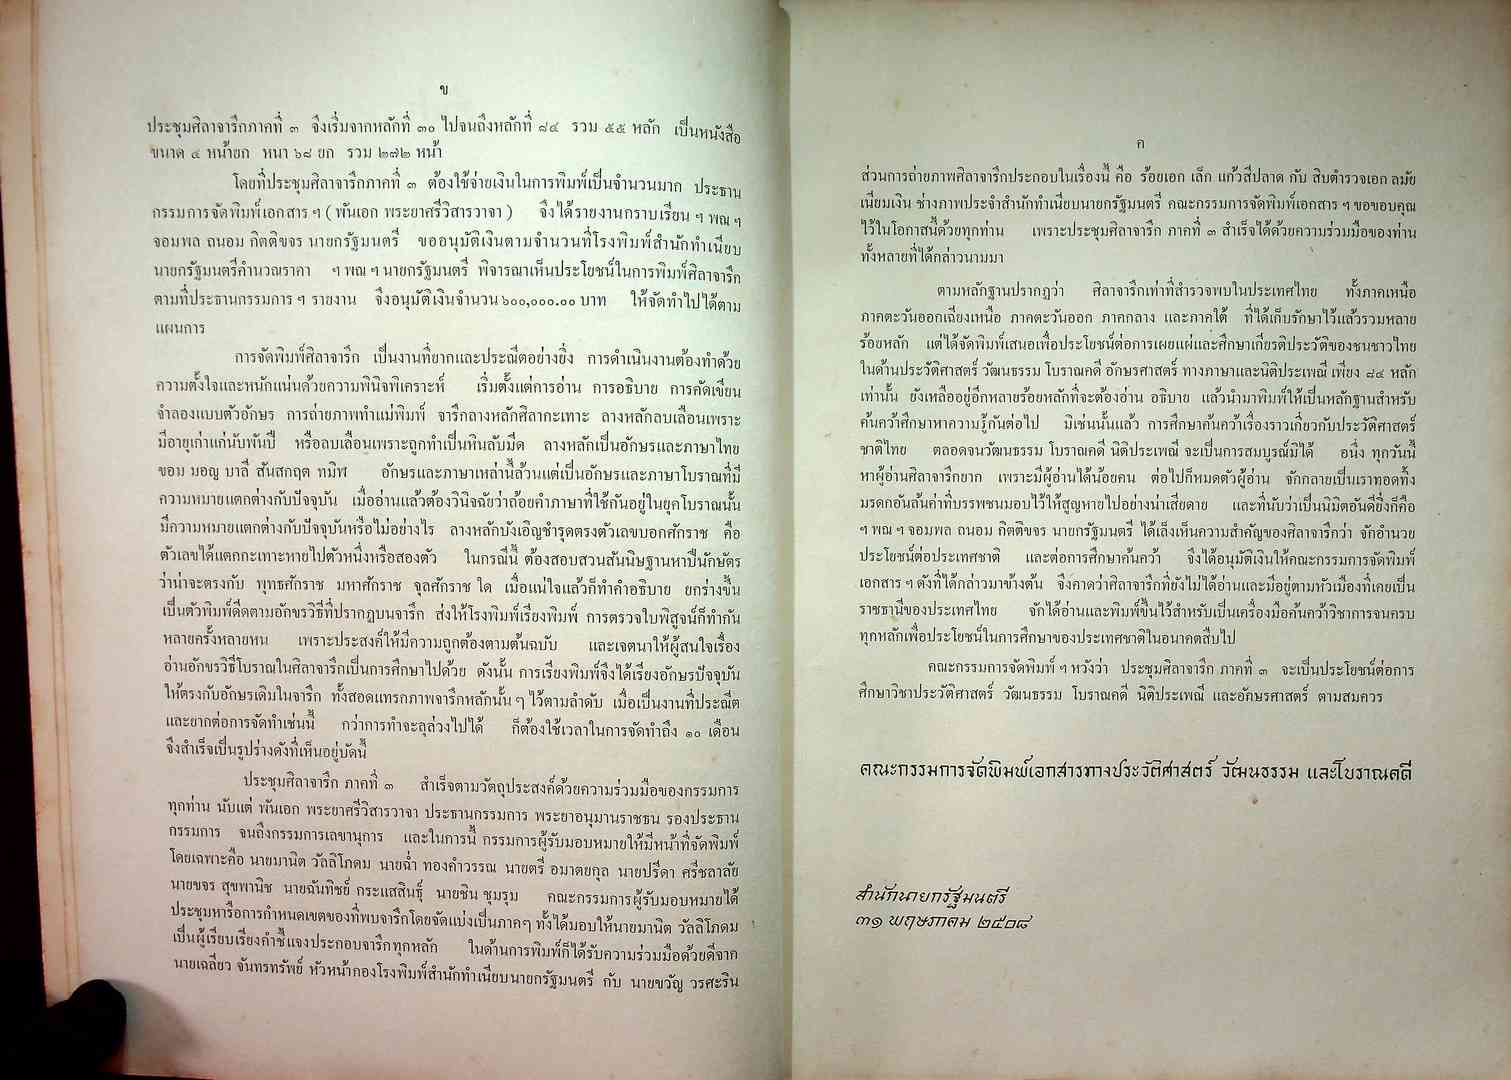 ข
ประชุมศิลาจารึกภาคที่ ๓ จึงเริ่มจากหลักที่ ๓๐ ไปจนถึงหลักที่ ๘๔ รวม ๕๕ หลัก เป็นหนังสือ
ขนาด ๔ หน้ายก หนา ๖๘ ยก รวม ๒๗๒ หน้า
โดยที่ประชุมศิลาจารึกภาคที่ ๓ ต้องใช้จ่ายเงินในการพิมพ์เป็นจำนวนมาก ประธาน
กรรมการจัดพิมพ์เอกสาร ฯ ( พันเอก พระยาศรีวิสารวาจา ) จึงได้รายงานกราบเรียน ฯ พณ ฯ
จอมพล ถนอม กิตติขจร นายกรัฐมนตรี ขออนุมัติเงินตามจำนวนที่โรงพิมพ์สำนักทำเนียบ
นายกรัฐมนตรีคำนวณราคา ฯ พณ ฯ นายกรัฐมนตรี พิจารณาเห็นประโยชน์ในการพิมพ์ศิลาจารึก
ตามที่ประธานกรรมการ ฯ รายงาน จึงอนุมัติเงินจำนวน ๖๐๐,๐๐๐.๐๐ บาท ให้จัดทำไปได้ตาม
แผนการ
การจัดพิมพ์ศิลาจารึก เป็นงานที่ยากและประณีตอย่างยิ่ง การดำเนินงานต้องทำด้วย
ความตั้งใจและหนักแน่นด้วยความพินิจพิเคราะห์ เริ่มตั้งแต่การอ่าน การอธิบาย การคัดเขียน
จำลองแบบตัวอักษร การถ่ายภาพทำแม่พิมพ์ จารึกลางหลักศิลากะเทาะ ลางหลักลบเลือนเพราะ
มีอายุเก่าแก่นับพันปี หรือลบเลือนเพราะถูกทำเป็นหินลับมีด ลางหลักเป็นอักษรและภาษาไทย
ขอม มอญ บาลี สันสกฤต ทมิฬ อักษรและภาษาเหล่านี้ล้วนแต่เป็นอักษรและภาษาโบราณที่มี
ความหมายแตกต่างกับปัจจุบัน เมื่ออ่านแล้วต้องวินิจฉัยว่าถ้อยคำภาษาที่ใช้กันอยู่ในยุคโบราณนั้น
มีความหมายแตกต่างกับปัจจุบันหรือไม่อย่างไร ลางหลักบังเอิญชำรุดตรงตัวเลขบอกศักราช คือ
ตัวเลขได้แตกกะเทาะหายไปตัวหนึ่งหรือสองตัว ในกรณีนี้ ต้องสอบสวนสันนิษฐานหาปีนักษัตร
ว่าน่าจะตรงกับ พุทธศักราช มหาศักราช จุลศักราช ใด เมื่อแน่ใจแล้วก็ทำคำอธิบาย ยกร่างขึ้น
เป็นตัวพิมพ์ดีดตามอักขรวิธีที่ปรากฏบนจารึก ส่งให้โรงพิมพ์เรียงพิมพ์ การตรวจใบพิสูจน์ก็ทำกัน
หลายครั้งหลายหน เพราะประสงค์ให้มีความถูกต้องตามต้นฉบับ และเจตนาให้ผู้สนใจเรื่อง
อ่านอักขรวิธีโบราณในศิลาจารึกเป็นการศึกษาไปด้วย ดังนั้น การเรียงพิมพ์จึงได้เรียงอักษรปัจจุบัน
ให้ตรงกับอักษรเดิมในจารึก ทั้งสอดแทรกภาพจารึกหลักนั้น ๆ ไว้ตามลำดับ เมื่อเป็นงานที่ประณีต
และยากต่อการจัดทำเช่นนี้ กว่าการทำจะลุล่วงไปได้ ก็ต้องใช้เวลาในการจัดทำถึง ๑๐ เดือน
จึงสำเร็จเป็นรูปร่างดังที่เห็นอยู่บัดนี้
ประชุมศิลาจารึก ภาคที่ ๓ สำเร็จตามวัตถุประสงค์ด้วยความร่วมมือของกรรมการ
ทุกท่าน นับแต่ พันเอก พระยาศรีวิสารวาจา ประธานกรรมการ พระยาอนุมานราชธน รองประธาน
กรรมการ จนถึงกรรมการเลขานุการ และในการนี้ กรรมการผู้รับมอบหมายให้มีหน้าที่จัดพิมพ์
โดยเฉพาะคือ นายมานิต วัลลิโภดม นายฉ่ำ ทองคำวรรณ นายตรี อมาตยกุล นายปรีดา ศรีชลาลัย
นายขจร สุขพานิช นายฉันทิชย์ กระแสสินธุ์ นายชิน ชุมรุม คณะกรรมการผู้รับมอบหมายได้
ประชุมหารือการกำหนดเขตของที่พบจารึกโดยจัดแบ่งเป็นภาคๆ ทั้งได้มอบให้นายมานิต วัลลิโภดม
เป็นผู้เรียบเรียงคำชี้แจงประกอบจารึกทุกหลัก ในด้านการพิมพ์ก็ได้รับความร่วมมือด้วยดีจาก
นายเฉลียว จันทรทรัพย์ หัวหน้ากองโรงพิมพ์สำนักทำเนียบนายกรัฐมนตรี กับ นายขวัญ วรศะริน
ค
ส่วนการถ่ายภาพศิลาจารึกประกอบในเรื่องนี้ คือ ร้อยเอก เล็ก แก้วสีปลาด กับ สิบตำรวจเอก ลมัย
เนียมเงิน ช่างภาพประจำสำนักทำเนียบนายกรัฐมนตรี คณะกรรมการจัดพิมพ์เอกสาร ฯ ขอขอบคุณ
ไว้ในโอกาสนี้ด้วยทุกท่าน เพราะประชุมศิลาจารึก ภาคที่ ๓ สำเร็จได้ด้วยความร่วมมือของท่าน
ทั้งหลายที่ได้กล่าวนามมา
ตามหลักฐานปรากฏว่า ศิลาจารึกเท่าที่สำรวจพบในประเทศไทย ทั้งภาคเหนือ
ภาคตะวันออกเฉียงเหนือ ภาคตะวันออก ภาคกลาง และภาคใต้ ที่ได้เก็บรักษาไว้แล้วรวมหลาย
ร้อยหลัก แต่ได้จัดพิมพ์เสนอเพื่อประโยชน์ต่อการเผยแผ่และศึกษาเกียรติประวัติของชนชาวไทย
ในด้านประวัติศาสตร์ วัฒนธรรม โบราณคดี อักษรศาสตร์ ทางภาษาและนิติประเพณี เพียง ๘๔ หลัก
เท่านั้น ยังเหลืออยู่อีกหลายร้อยหลักที่จะต้องอ่าน อธิบาย แล้วนำมาพิมพ์ให้เป็นหลักฐานสำหรับ
ค้นคว้าศึกษาหาความรู้กันต่อไป มิเช่นนั้นแล้ว การศึกษาค้นคว้าเรื่องราวเกี่ยวกับประวัติศาสตร์
ชาติไทย ตลอดจนวัฒนธรรม โบราณคดี นิติประเพณี จะเป็นการสมบูรณ์มิได้ อนึ่ง ทุกวันนี้
หาผู้อ่านศิลาจารึกยาก เพราะมีผู้อ่านได้น้อยคน ต่อไปก็หมดตัวผู้อ่าน จักกลายเป็นเราทอดทิ้ง
มรดกอันล้นค่าที่บรรพชนมอบไว้ให้สูญหายไปอย่างน่าเสียดาย และที่นับว่าเป็นนิมิตอันดียิ่งก็คือ
ฯ พณ ฯ จอมพล ถนอม กิตติขจร นายกรัฐมนตรี ได้เล็งเห็นความสำคัญของศิลาจารึกว่า จักอำนวย
ประโยชน์ต่อประเทศชาติ และต่อการศึกษาค้นคว้า จึงได้อนุมัติเงินให้คณะกรรมการจัดพิมพ์
เอกสาร ฯ ดังที่ได้กล่าวมาข้างต้น จึงคาดว่าศิลาจารึกที่ยังไม่ได้อ่านและมีอยู่ตามหัวเมืองที่เคยเป็น
ราชธานีของประเทศไทย จักได้อ่านและพิมพ์ขึ้นไว้สำหรับเป็นเครื่องมือค้นคว้าวิชาการจนครบ
ทุกหลักเพื่อประโยชน์ในการศึกษาของประเทศชาติในอนาคตสืบไป
คณะกรรมการจัดพิมพ์ ฯ หวังว่า ประชุมศิลาจารึก ภาคที่ ๓ จะเป็นประโยชน์ต่อการ
ศึกษาวิชาประวัติศาสตร์ วัฒนธรรม โบราณคดี นิติประเพณี และอักษรศาสตร์ ตามสมควร
คณะกรรมการจัดพิมพ์เอกสารทางประวัติศาสตร์ วัฒนธรรม และโบราณคดี
สำนักนายกรัฐมนตรี
๓๑ พฤษภาคม ๒๕๐๘